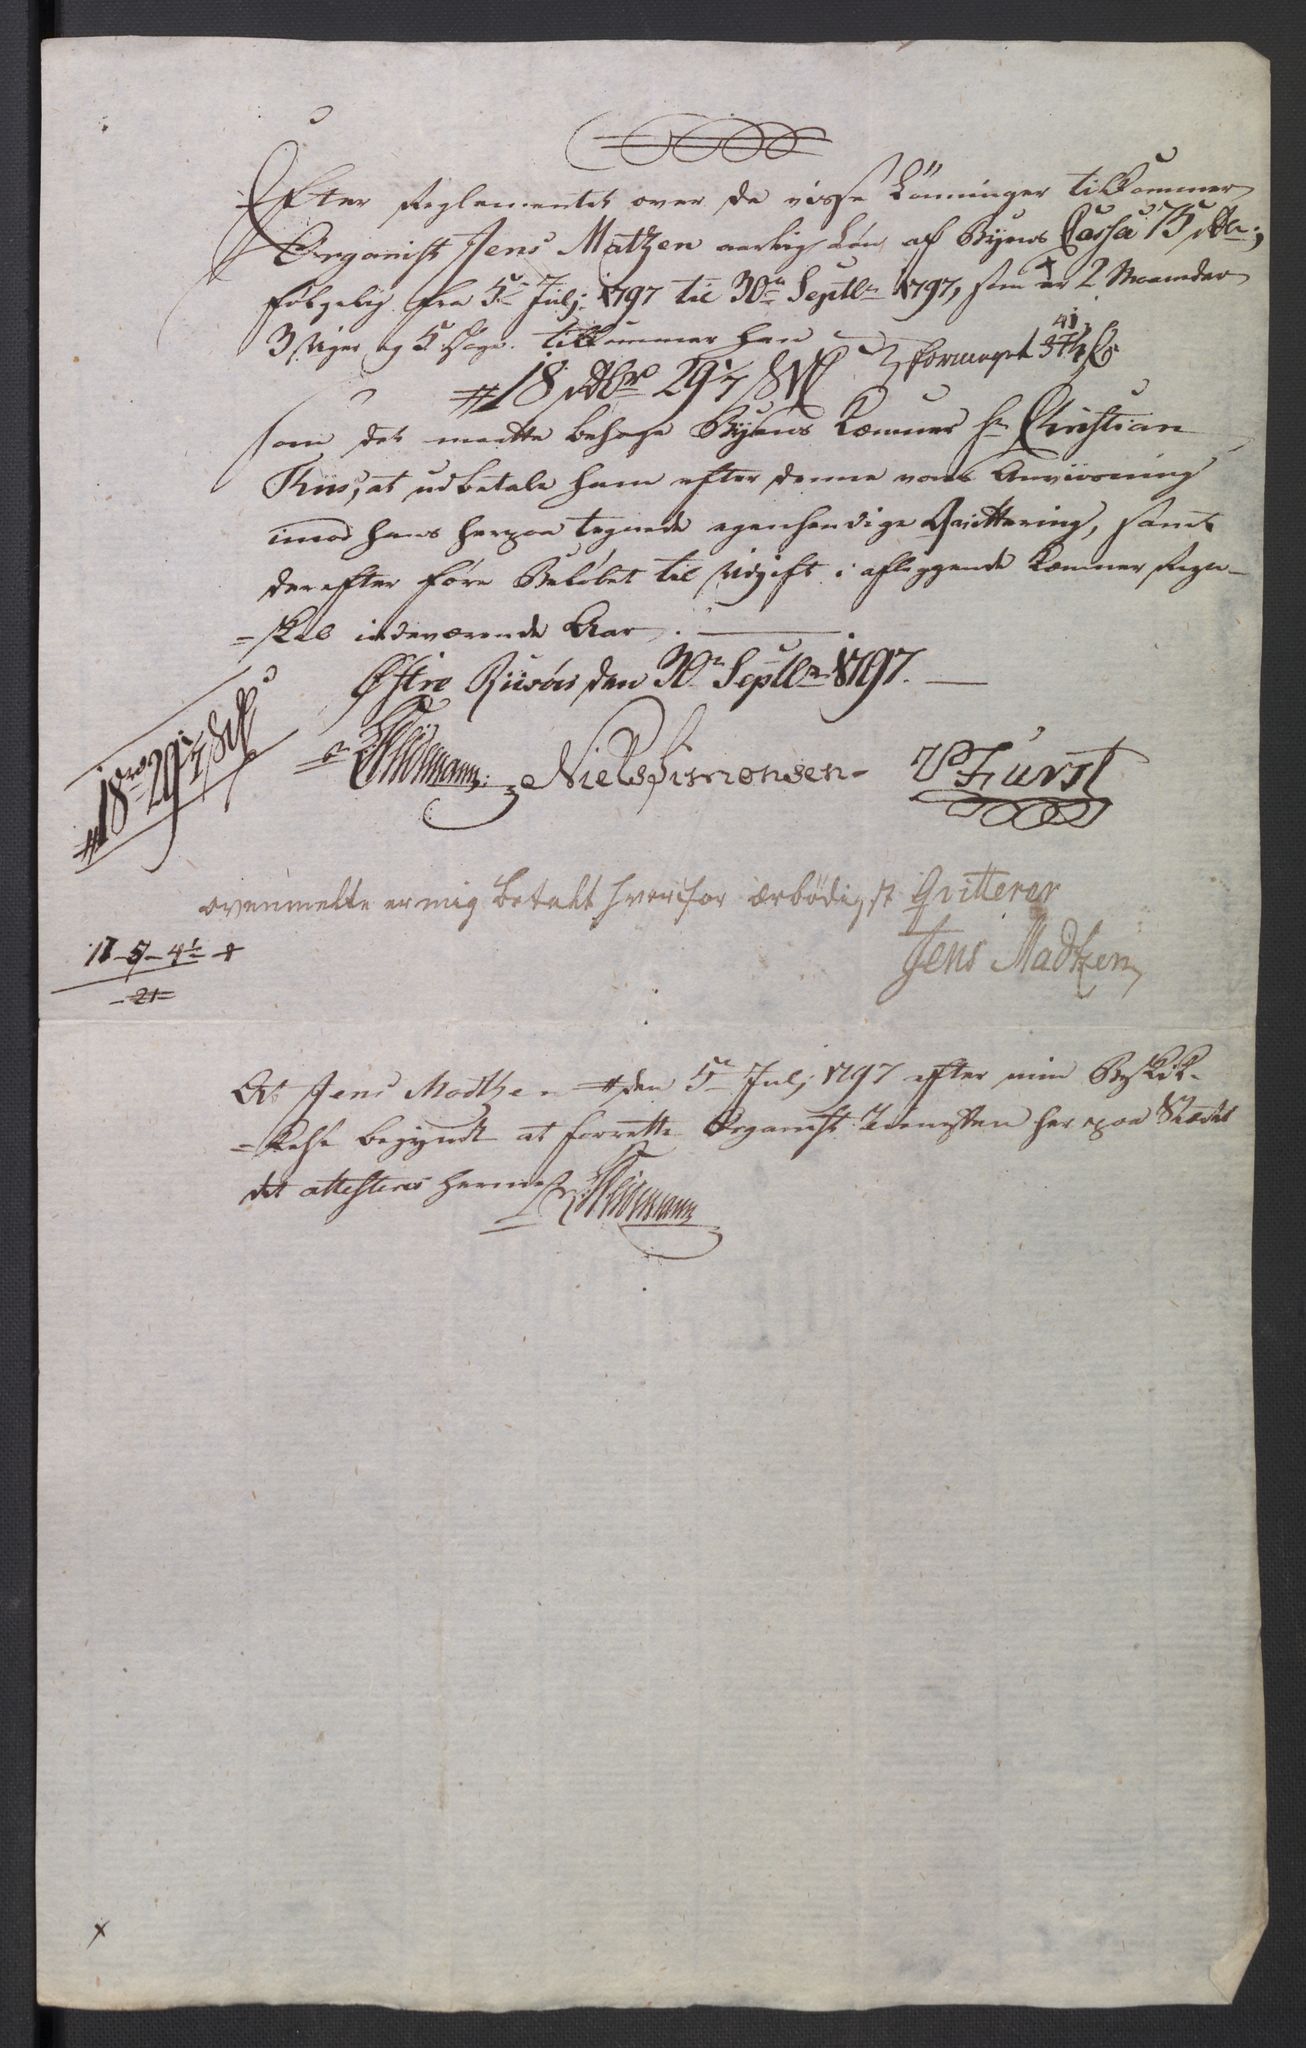 Efter Reglementet over de visse Lönninger tilkommer
Organist Jens Matzen aarlig Løn af Byens Cassa 75 rdlr,
følgelig fra 5te Julj 1797 til 30te Septbr 1797, som er 2 Maaneder
3 Uger og 5 Dage tilkommer han
41
# 18 rdlr 29 1/7 s
som det maatte behage Byens Kæmner Hr Christian
Friis, at udbetale ham efter denne vores Anviisning
imod hans herpaa tegnede egenhændige Qvittering, samt
derefter føre Beløbet til Udgift i aflæggende Kæmner Regn-
=skab indeværende Aar.
Østre Riisöer den 30te Septbr 1797.
Niels Simonsen
Fürst
# 18 rd 29 1/7 s
ovenmelte er mig betalt hvorfor ærbödigst Qvitterer
Jens Madtzen
17-5-4
21
At Jens Madtzen den 5te Julj 1797 efter min Beskik-
=kelse begyndt at forrette Organist Tienesten her paa Stædet
det attesteres herved
x